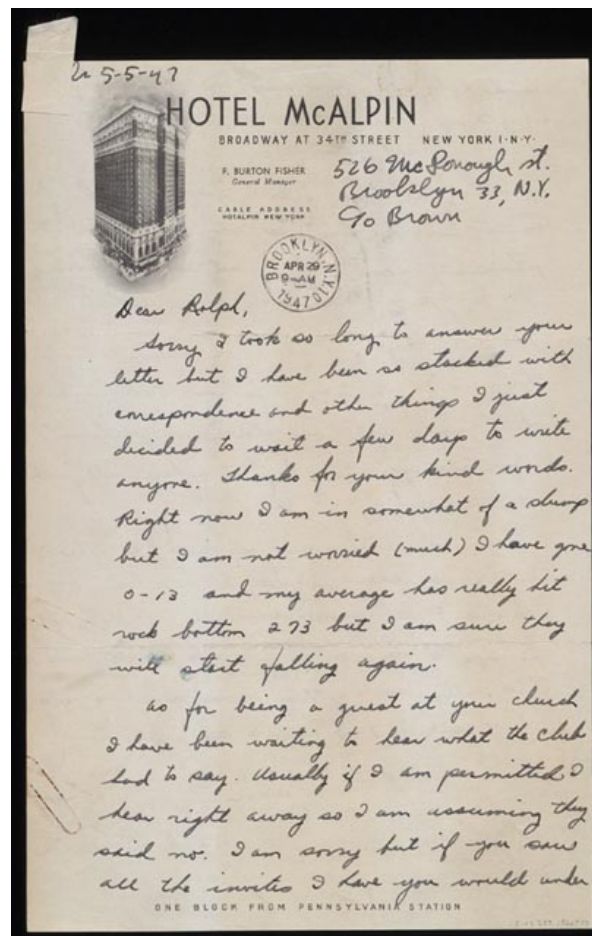 5-5-47
HOTEL McALPIN
BROADWAY AT 34TH STREET NEW YORK 1·N·Y·
F. BURTON FISHER
General Manager
CABLE ADDRESS
HOTALPIN NEW YORK
526 McDonough st.
Brooklyn 33, N.Y.
c/o Brown
BROOKLYN, N.Y.
APR 29
9-AM
1947
Dear Ralph,
Sorry I took so long to answer your
letter but I have been so stacked with
correspondence and other things I just
decided to wait a few days to write
anyone. Thanks for your kind words.
Right now I am in somewhat of a slump
but I am not worried (much) I have gone
0-13 and my average has really hit
rock bottom 273 but I am sure they
will start falling again.
As for being a guest at your church
I have been waiting to hear what the club
had to say. Usually if I am permitted I
hear right away so I am assuming they
said no. I am sorry but if you saw
all the invites I have you would under
ONE BLOCK FROM PENNSYLVANIA STATION